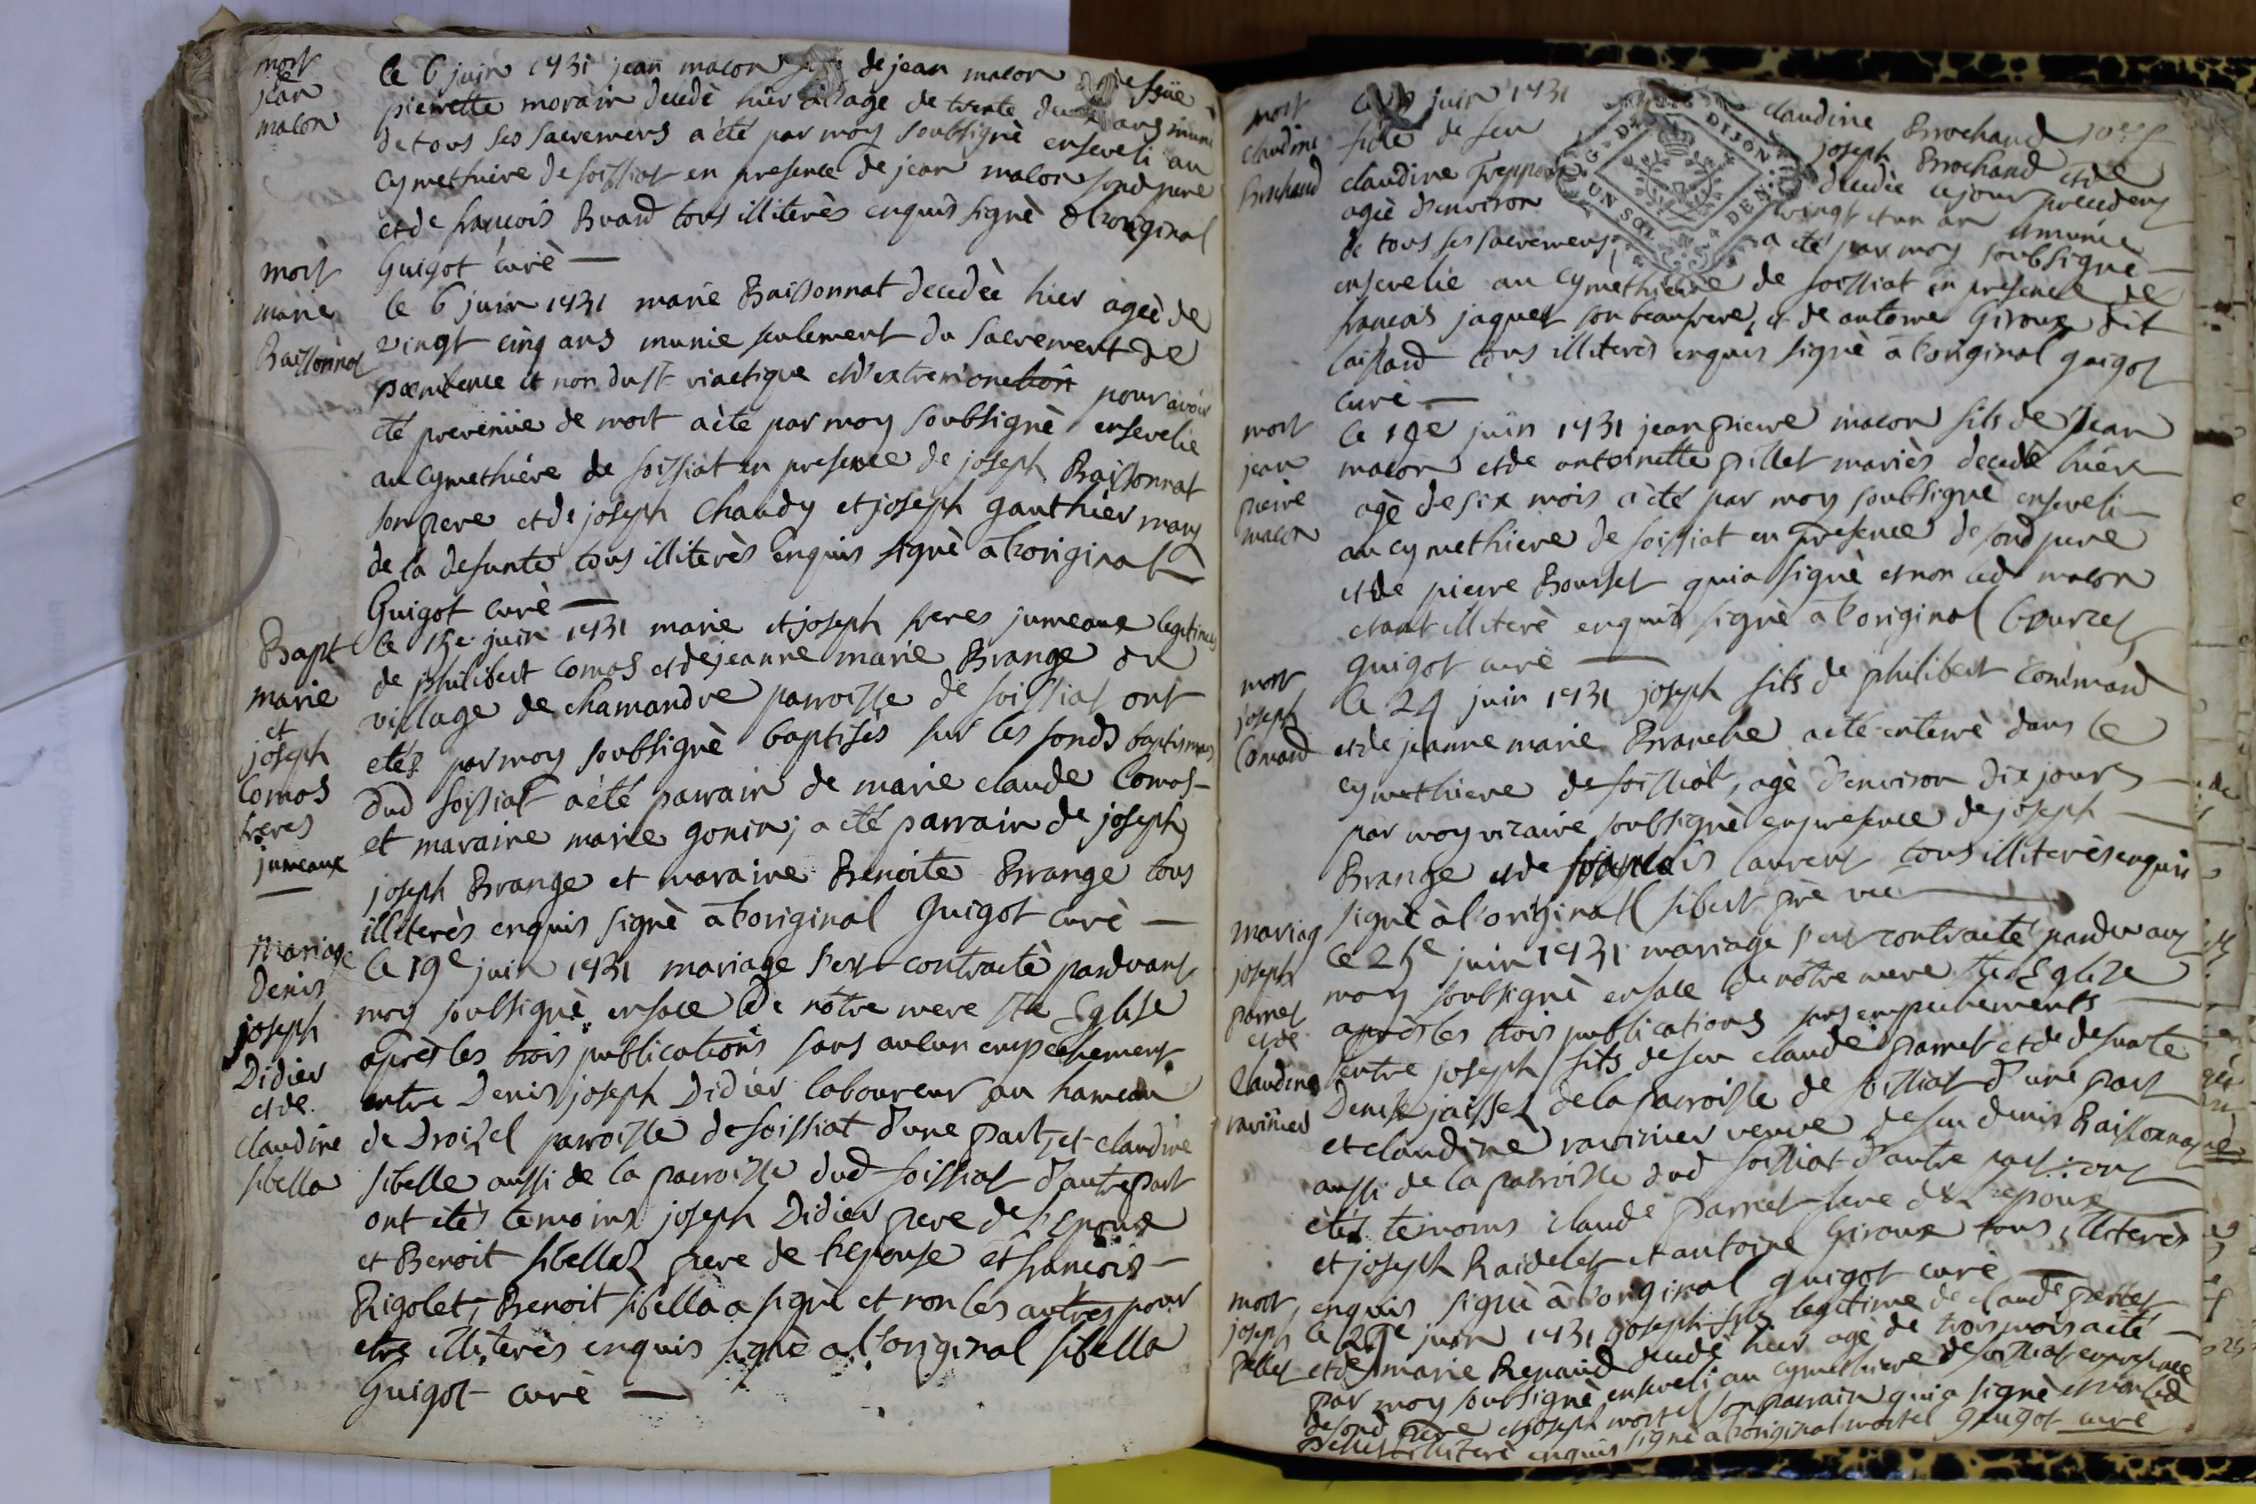 mort
jean
macon
le 6 juin 1731 jean macon de jean macon
pierrette morain decedé hier age de trente ans muni
de tous ses sacremens a été par moy soubsigné enseveli au
cymethiere de soissiat en presence de jean macon sond pere
et de francois Buand tous illiterès enquis signè a l'original
Guigot curè —
mort
marie
Baissonnat
le 6 juin 1731 marie Baissonnat decedèe hier ageè de
vingt cinq ans munie seulement du sacrement de
pœnitence et non du st viactique et d'extremonction pour avoir
été prevenüe de mort a été par moy soubsignè ensevelie
au cymethiere de soissiat en presence de joseph Baissonnat
son pere et de joseph Chaudy et joseph gauthier mary
de la defunte tous illiterès enquis signè a l'original
Guigot curè —
Bapt
marie
et
joseph
Comas
freres
jumeaux
le 15e juin 1731 marie et joseph freres jumeaux legitimes
de philibert comas et de jeanne marie Brange du
village de chamandre parroisse de soissiat ont
etés par moy soubsignè baptisès sur les fonds baptismaux
dud soissiat a été parrain de marie claude Comas
et maraine marie gonin; a été parrain de joseph
joseph Brange et maraine Benoite Brange tous
illiterès enquis signè a l'original Guigot curè —
Mariage
Denis
joseph
Didier
et de
claudine
sibella
le 19e juin 1731 mariage s'est contractè pardvant
moy soubsignè en face de nôtre mere ste Eglise
aprés les trois publications sans aucun empechement
entre Denis joseph Didier laboureur au hameau
de Droisel parroisse de soissiat d'une part, et claudine
sibelle aussi de la parroisse dud soissiat d'autre part
ont étés temoins joseph Didier pere de l'Epoux
et Benoit sibella pere de l'Epouse et francois
Rigolet, Benoit sibella a signè et non les autres pour
etre illiterès enquis signè a l'original sibella
Guigot curè —
mort
claudine
Brochand
le juin 1731 claudine Brochand
fille de feu joseph Brochand et de
claudine decedée le jour precedent
ageè d'environ vingt et un an munie
de tous ses sacremens, a été par moy soubsignè
ensevelie au cymethiere de soissiat en presence de
francois jaquet son beaufrere, et de antoine Giroux dit
tous illiterès enquis signè a l'original guigot
curè —
G. DE DIJON
UN SOL 4 DEN.
mort
jean
pierre
macon
le 19e juin 1731 jean pierre macon fils de jean
macon et de antoinette pillet mariès decedè hier
agè de six mois a été par moy soubsignè enseveli
au cymethiere de soissiat en presence de sond pere
et de pierre Bourset qui a signè et non led macon
etant illiterè enquis signè a l'original Bourcet
guigot curè —
mort
joseph
Comand
le 24 juin 1731 joseph fils de philibert Command
et de jeanne marie Branche a été enterrè dans le
cymethiere de soissiat, agè d'environ dix jours
par moy vicaire soubsignè en presence de joseph
Brange et de francois laurent tous illiterès enquis
signè à l'original sibert pre vic
mariag
joseph
parnet
et de
Claudine
ravinier
le 25e juin 1731 mariage s'est contractè pardevant
moy soubsignè en face de nôtre mere ste Eglise
aprés les trois publications sans empechements
entre joseph fils de feu claude parnet et de defunte
Denise jaisset de la parroisse de soissiat d'une part
et claudine ravinier veuve de feu denis Baissonnat
aussi de la parroisse dud soissiat d'autre part: ont
étés temoins claude parnet frere de l'epoux
et joseph Raidelet et antoine Giroux tous illiterès
enquis signè à l'original guigot curè
mort
joseph
pellet
le 29e juin 1731 joseph fils legitime de claude pellet
et de marie Renaud decedè hier agè de trois mois a été
par moy soubsignè enseveli au cymethiere de soissiat en presence
de sond pere et joseph mortel son parrain qui a signè et non led
pellet illiterè enquis signè a l'original mortel guigot curè